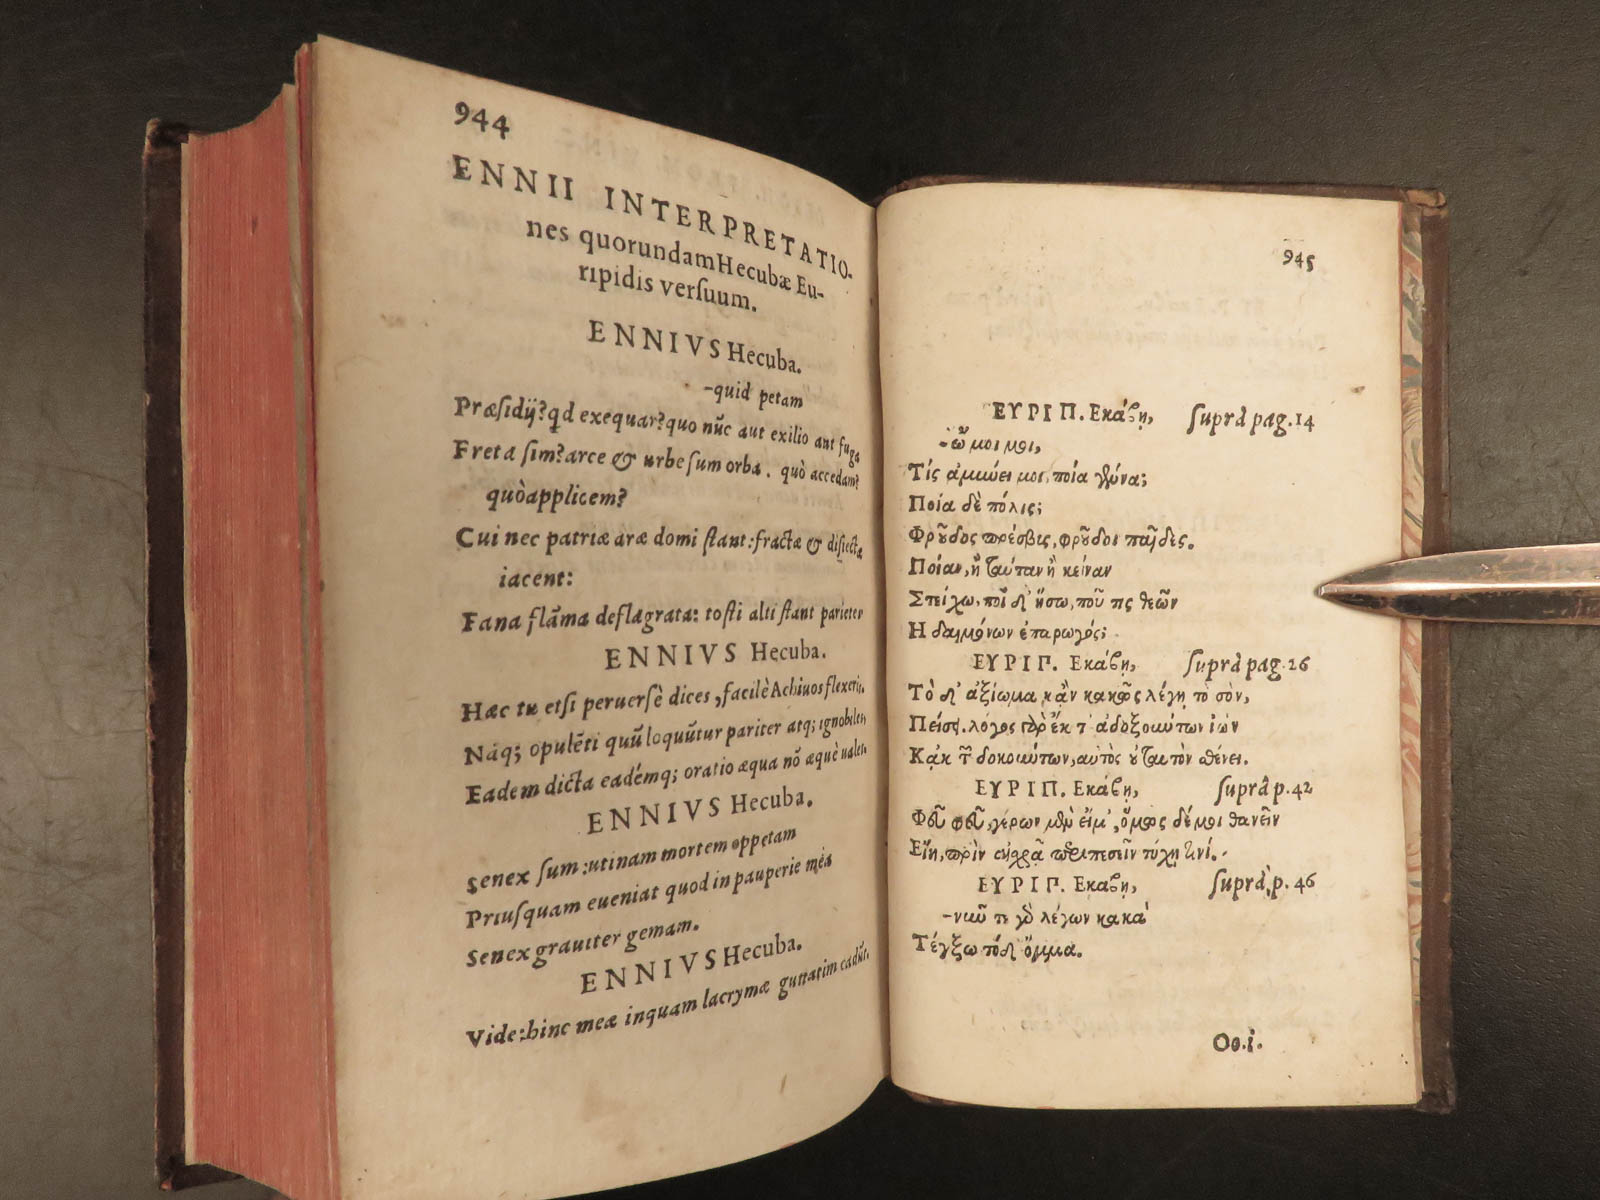 944
ENNII INTERPRETATIO-
nes quorundam Hecubæ Eu-
ripidis verſuum.
ENNIVS Hecuba.
-quid petam
Præſidij? qd exequar? quo nũc aut exilio aut fuga
Freta ſim? arce & urbe ſum orba. quò accedam?
quò applicem?
Cui nec patriæ aræ domi ſtant: fractæ & diſiectæ
iacent:
Fana flãma deflagrata: toſti alti ſtant parietes
ENNIVS Hecuba.
Hæc tu etſi peruerſè dices, facilè Achiuos flexeris.
Nãq; opulẽti quũ loquũtur pariter atq; ignobiles,
Eadem dicta eadémq; oratio æqua nõ æquè ualet.
ENNIVS Hecuba.
Senex ſum: utinam mortem oppetam
Priuſquam eueniat quod in pauperie mea
Senex grauiter gemam.
ENNIVS Hecuba.
Vide: hinc meæ inquam lacrymæ guttatim cadũt.
945
ΕΥΡΙΠ. Εκάβη, ſuprà pag. 14
-ὤ μοι μοι,
Τίς ἀμύνει μοι, ποία γέννα;
Ποία δὲ πόλις;
Φροῦδος πρέσβις, φροῦδοι παῖδες.
Ποίαν, ἢ ταύταν ἢ κείναν
Στείχω, ποῖ δ' ἥσω, ποῦ τις θεῶν
Η δαιμόνων ἐπαρωγός;
ΕΥΡΙΠ. Εκάβη, ſuprà pag. 26
Τὸ δ' ἀξίωμα κἂν κακῶς λέγῃ τὸ σὸν,
Πείσει. λόγος γὰρ ἔκ τ' ἀδοξούντων ἰὼν
Κἀκ τῶν δοκούντων, αὐτὸς οὐ ταυτὸν σθένει.
ΕΥΡΙΠ. Εκάβη, ſuprà p. 42
Φεῦ φεῦ, γέρων μὲν εἴμ', ὅμως δέ μοι θανεῖν
Εἴη, πρὶν αἰσχρᾷ περιπεσεῖν τύχῃ τινί.
ΕΥΡΙΠ. Εκάβη, ſuprà, p. 46
-νῦν τε γὰρ λέγων κακὰ
Τέγξω τόδ' ὄμμα.
Oo.i.